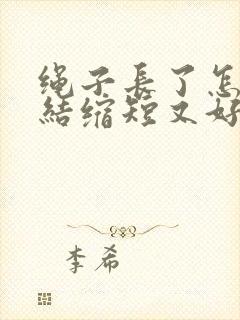 绳子長了怎
結缩短又好
李希